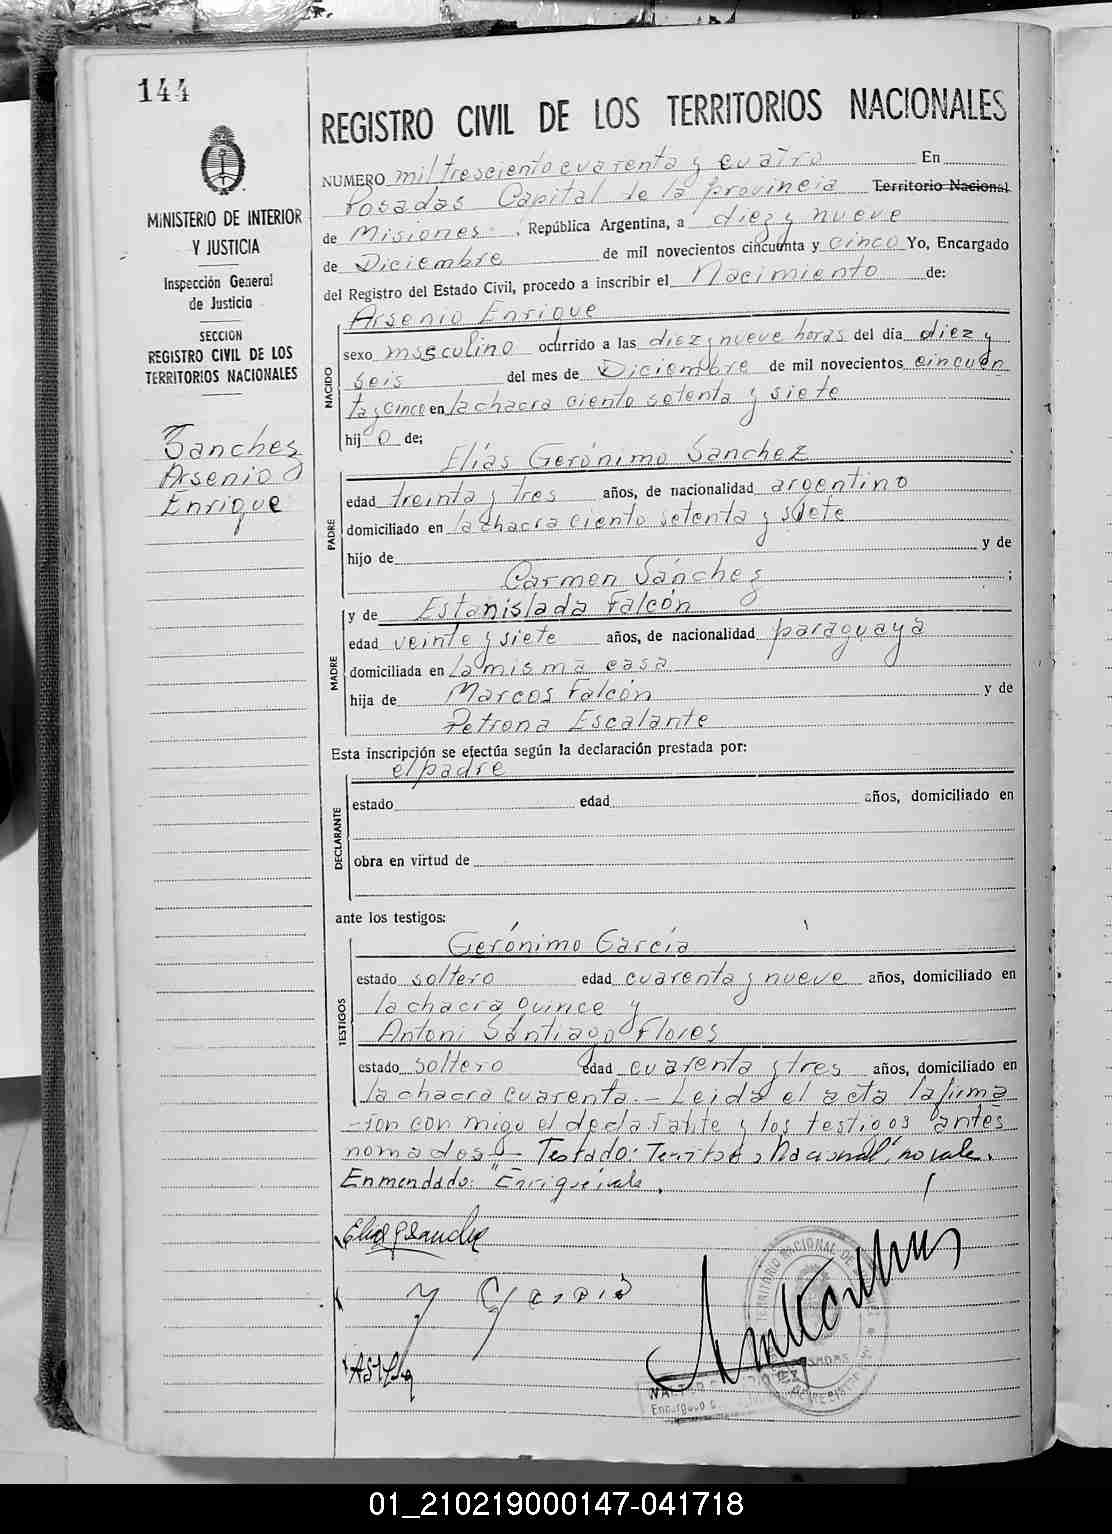 144
MINISTERIO DE INTERIOR
Y JUSTICIA
Inspección General
de Justicia
SECCION
REGISTRO CIVIL DE LOS
TERRITORIOS NACIONALES
Sanchez
Arsenio
Enrique
REGISTRO CIVIL DE LOS TERRITORIOS NACIONALES
NUMERO mil tresciento cuarenta y cuatro En
Posadas Capital de la provincia Territorio Nacional
de Misiones , República Argentina, a diez y nueve
de Diciembre de mil novecientos cincuenta y cinco Yo, Encargado
del Registro del Estado Civil, procedo a inscribir el Nacimiento de:
Arsenio Enrique
NACIDO
sexo masculino ocurrido a las diez y nueve horas del día diez y
seis del mes de Diciembre de mil novecientos cincuen
ta y cinco en la chacra ciento setenta y siete
hij o de;
Elías Gerónimo Sanchez
PADRE
edad treinta y tres años, de nacionalidad argentino
domiciliado en la chacra ciento setenta y siete
hijo de y de
Carmen Sánchez ;
y de Estanislada Falcón
MADRE
edad veinte y siete años, de nacionalidad paraguaya
domiciliada en la misma casa
hija de Marcos Falcón y de
Petrona Escalante
Esta inscripción se efectúa según la declaración prestada por:
el padre
DECLARANTE
estado edad años, domiciliado en
obra en virtud de
ante los testigos:
Gerónimo García
TESTIGOS
estado soltero edad cuarenta y nueve años, domiciliado en
la chacra quince y
Antoni Santiago Flores
estado soltero edad cuarenta y tres años, domiciliado en
la chacra cuarenta.- Leida el acta la firma
-ron con migo el declarante y los testigos antes
nomados - Testado: Territorio Nacional, no vale.
Enmendado: "Enrique" vale.
y Garcia
Encargado
01_210219000147-041718